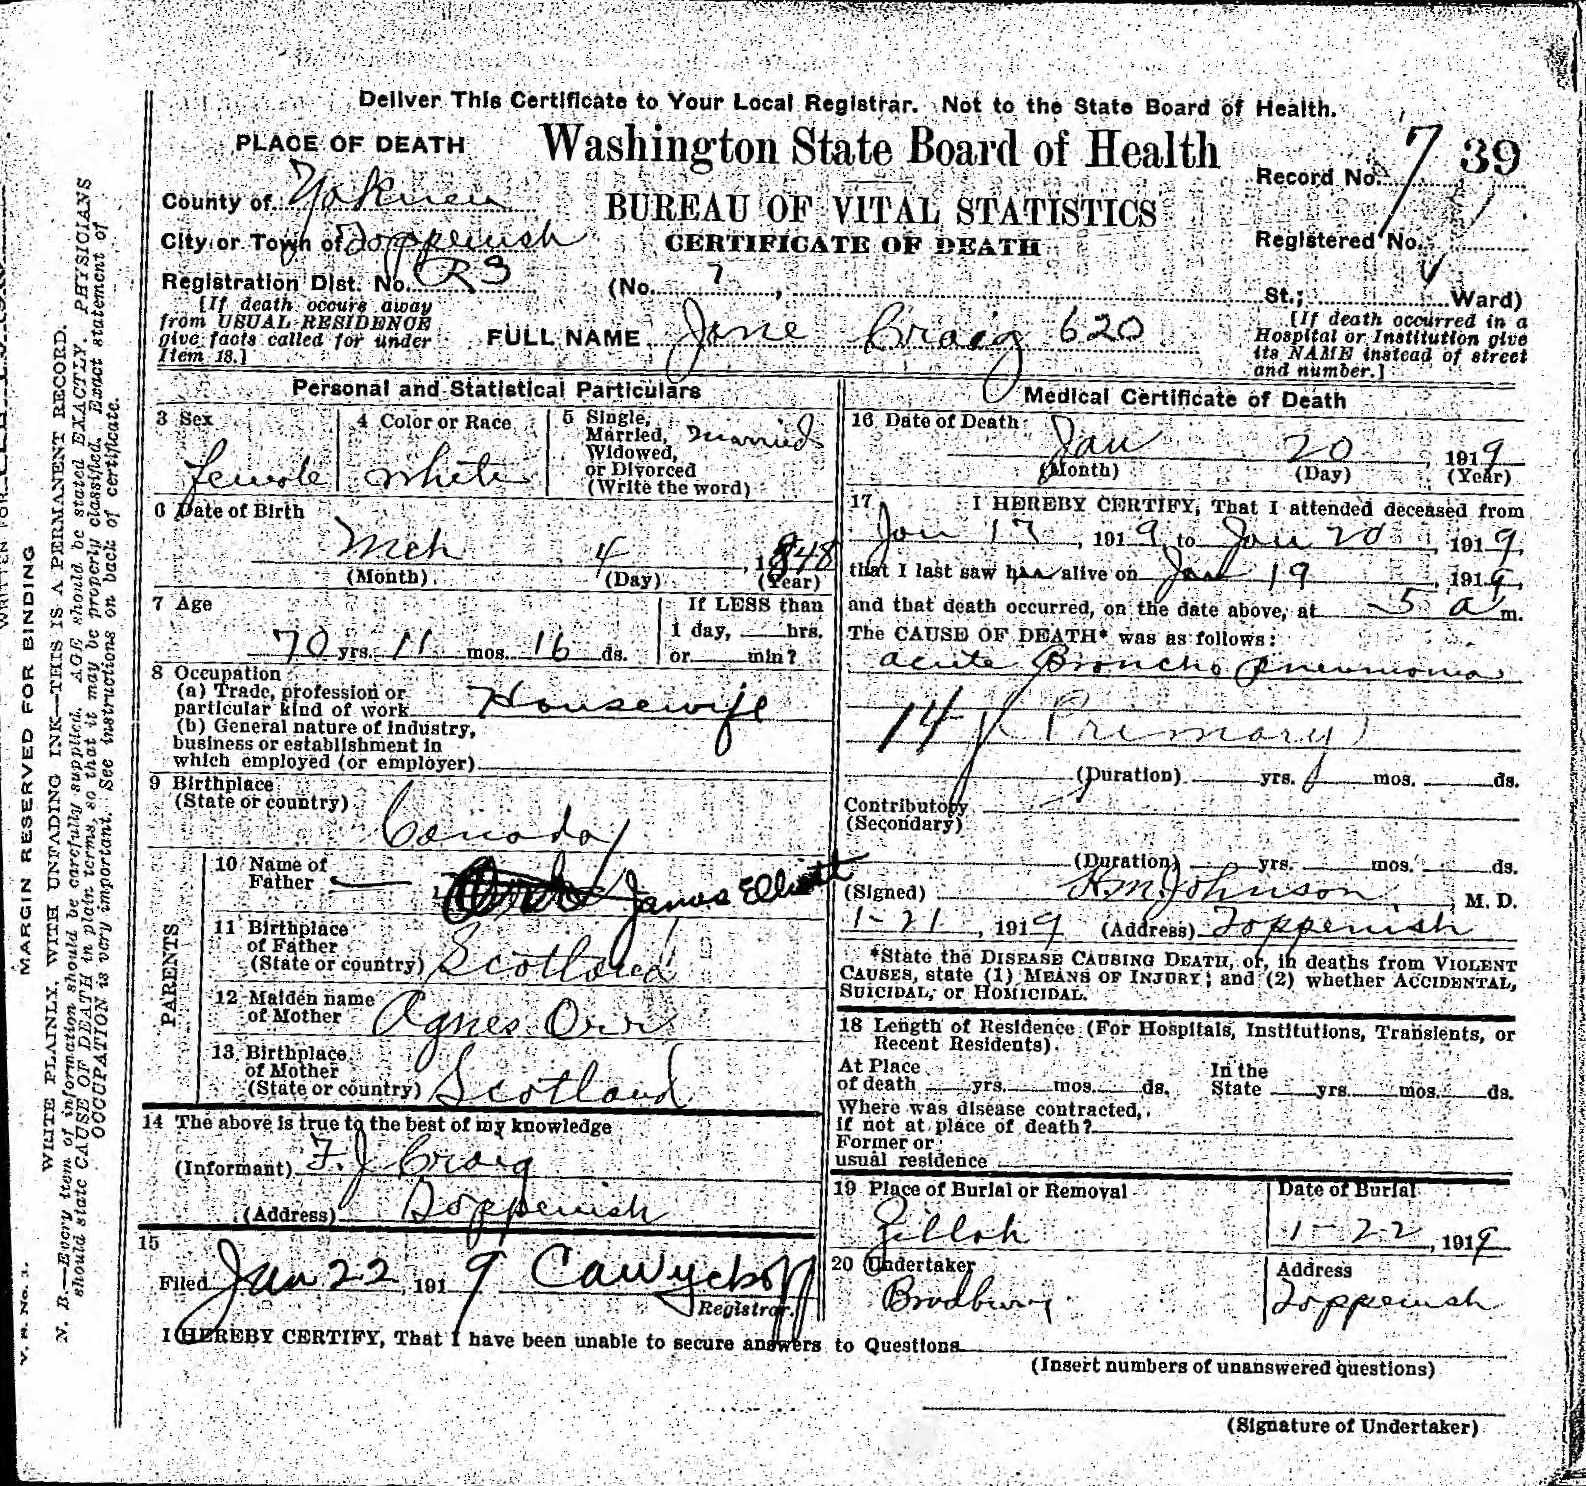 Deliver This Certificate to Your Local Registrar. Not to the State Board of Health.
PLACE OF DEATH
Washington State Board of Health
Record No. 7 39
County of Yakima
BUREAU OF VITAL STATISTICS
City or Town of Toppenish
CERTIFICATE OF DEATH
Registered No.
Registration Dist. No. R3
(No. 7, St.; 4 Ward)
[If death occurs away
from USUAL RESIDENCE
give facts called for under
Item 18.]
FULL NAME Jane Craig 620
[If death occurred in a
Hospital or Institution give
its NAME instead of street
and number.]
Personal and Statistical Particulars
3 Sex
Female
4 Color or Race
White
5 Single,
Married,
Widowed,
or Divorced
(Write the word)
Married
6 Date of Birth
Mch 4, 1848
(Month) (Day) (Year)
7 Age
70 yrs. 11 mos. 16 ds.
If LESS than
1 day, hrs.
or min?
8 Occupation
(a) Trade, profession or
particular kind of work Housewife
(b) General nature of industry,
business or establishment in
which employed (or employer)
9 Birthplace
(State or country)
Canada
PARENTS
10 Name of
Father James Elliott
11 Birthplace
of Father
(State or country) Scotland
12 Maiden name
of Mother Agnes Orr
13 Birthplace
of Mother
(State or country) Scotland
14 The above is true to the best of my knowledge
(Informant) F. J. Craig
(Address) Toppenish
15
Filed Jan 22, 1919 CaWyckoff
Registrar.
Medical Certificate of Death
16 Date of Death
Jan 20, 1919
(Month) (Day) (Year)
17 I HEREBY CERTIFY, That I attended deceased from
Jan 17, 1919, to Jan 20, 1919,
that I last saw her alive on Jan 19, 1919,
and that death occurred, on the date above, at 5 a m.
The CAUSE OF DEATH* was as follows:
acute Broncho pneumonia
14 (Primary)
(Duration) yrs. mos. ds.
Contributory
(Secondary)
(Duration) yrs. mos. ds.
(Signed) H M Johnson, M. D.
1-21, 1919 (Address) Toppenish
*State the DISEASE CAUSING DEATH, or, in deaths from VIOLENT
CAUSES, state (1) MEANS OF INJURY; and (2) whether ACCIDENTAL,
SUICIDAL, or HOMICIDAL.
18 Length of Residence (For Hospitals, Institutions, Transients, or
Recent Residents).
At Place
of death yrs. mos. ds.
In the
State yrs. mos. ds.
Where was disease contracted,
if not at place of death?
Former or
usual residence
19 Place of Burial or Removal
Zillah
Date of Burial
1-22, 1919
20 Undertaker
Bradbury
Address
Toppenish
I HEREBY CERTIFY, That I have been unable to secure answers to Questions
(Insert numbers of unanswered questions)
(Signature of Undertaker)
MARGIN RESERVED FOR BINDING
WRITE PLAINLY, WITH UNFADING INK—THIS IS A PERMANENT RECORD.
N. B.—Every item of information should be carefully supplied. AGE should be stated EXACTLY. PHYSICIANS
should state CAUSE OF DEATH in plain terms, so that it may be properly classified. Exact statement of
OCCUPATION is very important. See instructions on back of certificate.
V. S. No. 1.